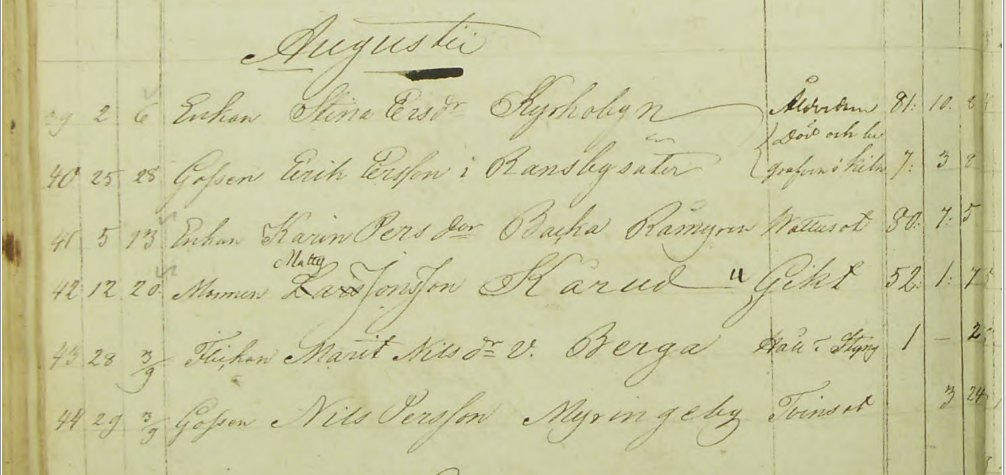 Augusti
39 2 6 Enkan Stina Ersdr Kyrkobyn Ålderdom 81. 10. 2
död och be
40 25 28 Gossen Erik Ersson i Ransbysäter grafven i Kihn 7. 3 2
41 5 13 Enkan Karin Persdotter Backa Råmyren Wattusot 80. 7. 5
Matts
42 12 20 Mannen Lars Jonsson Kårud " Gikt 52. 1. 7
43 28 3/9 Flickan Marit Nilsdr v. Berga Håll o Styng 1 – 2
44 29 3/9 Gossen Nils Persson Myringeby Tvinsot 3 24